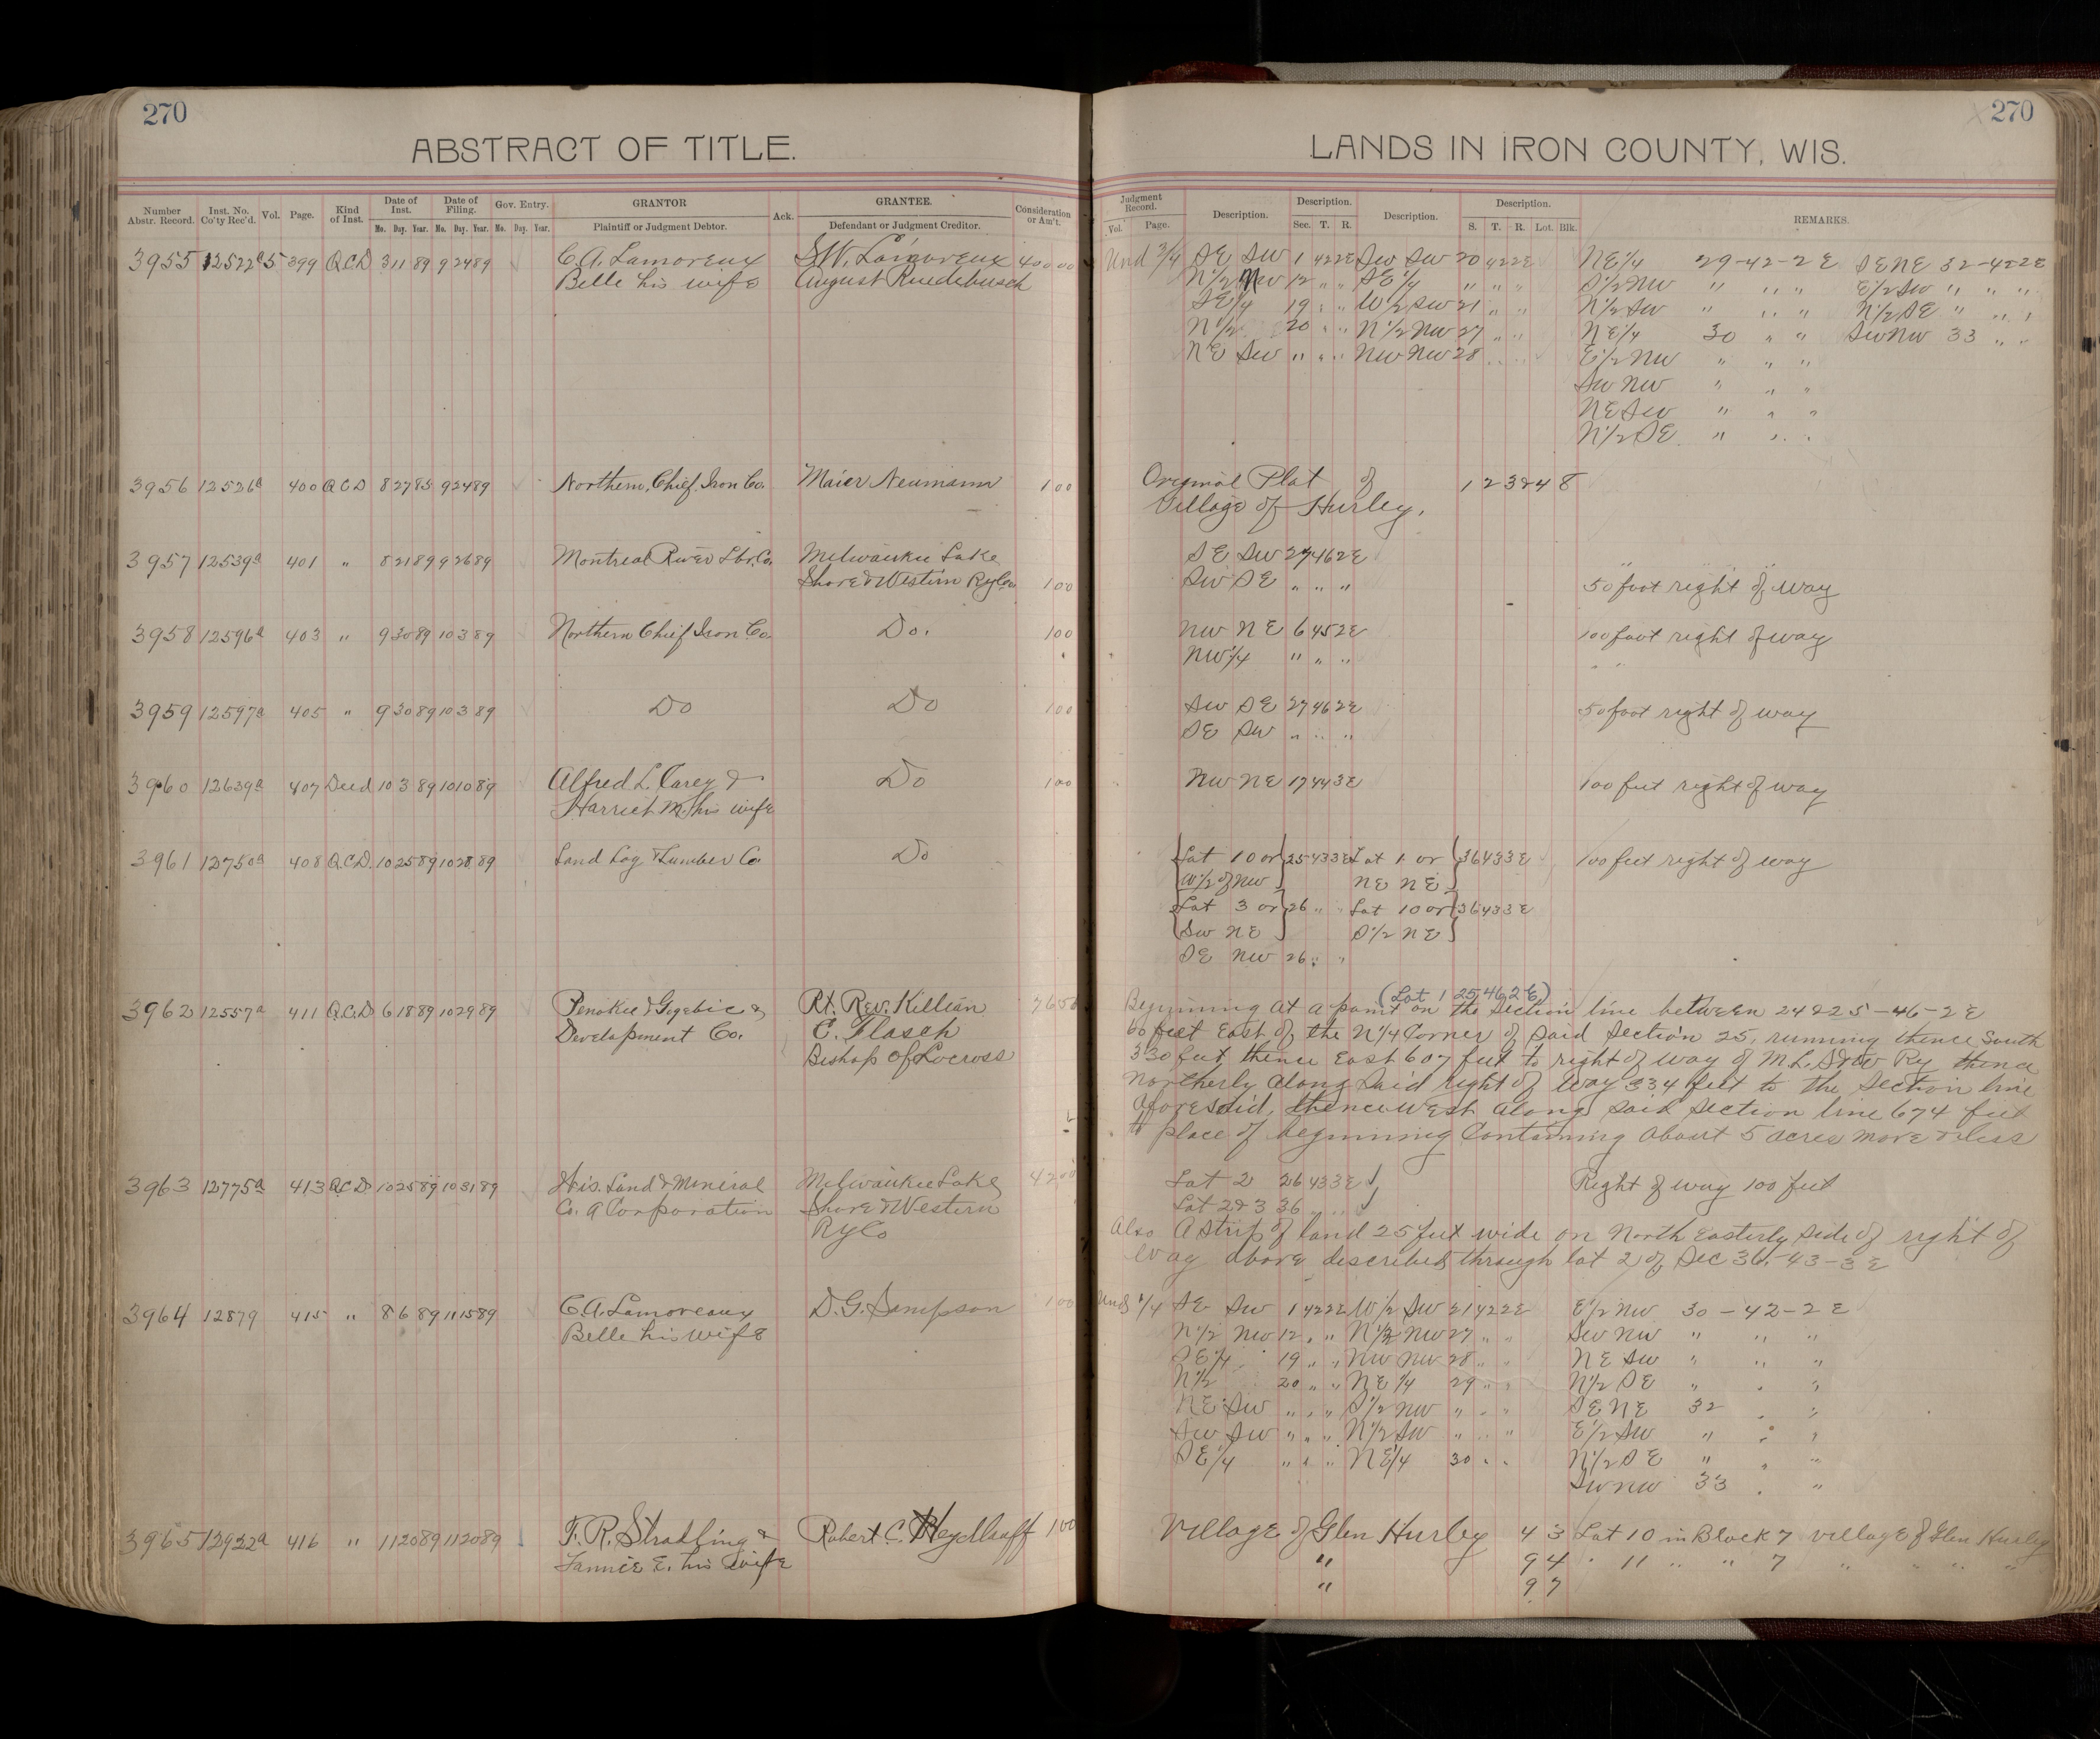 270
270
ABSTRACT OF TITLE.
LANDS IN IRON COUNTY, WIS.
Number Abstr. Record. Inst. No. Co'ty Rec'd. Vol. Page. Kind of Inst. Date of Inst. Mo. Day. Year. Date of Filing. Mo. Day. Year. Gov. Entry. Mo. Day. Year. GRANTOR Plaintiff or Judgment Debtor. Ack. GRANTEE. Defendant or Judgment Creditor. Consideration or Am't.
Judgment Record. Vol. Page. Description. Description. Sec. T. R. Description. Description. S. T. R. Lot. Blk. REMARKS.
3955 12522a 5 399 QCD 3 11 89 9 24 89 C.A. Lamoreux S.W. Lamoreux 400 00 Und 3/4 SE SW 1 42 2E SW SW 20 42 2E NE 1/4 29-42-2E SENE 32-42 2E
Belle his wife August Ruedebusch N 1/2 NW 12 " " SE 1/4 " " " S 1/2 NW " " " E 1/2 SW " " "
SE 1/4 19 " " W 1/2 SW 21 " " N 1/2 SW " " " N 1/2 SE " " "
N 1/2 20 " " N 1/2 NW 27 " " NE 1/4 30 " " SW NW 33 " "
NE SW " " " NW NW 28 " " E 1/2 NW " " "
SW NW " " "
NE SW " " "
N 1/2 SE " " "
3956 12526a 400 QCD 8 27 85 9 24 89 Northern Chief Iron Co. Maier Neumann 1 00 Original Plat of 1 2 3 & 4 8
Village of Hurley.
3957 12539a 401 " 8 21 89 9 26 89 Montreal River Lbr. Co. Milwaukee Lake SE SW 27 46 2E
Shore & Western Ry Co. 1 00 SW SE " " " 50 foot right of way
3958 12596a 403 " 9 30 89 10 3 89 Northern Chief Iron Co. Do. 1 00 NW NE 6 45 2E 100 foot right of way
NW 1/4 " " " " "
3959 12597a 405 " 9 30 89 10 3 89 Do Do 1 00 SW SE 27 46 2E 50 foot right of way
SE SW " " "
3960 12639a 407 Deed 10 3 89 10 10 89 Alfred L. Carey & Do 1 00 NW NE 17 44 3E 100 feet right of way
Harriet M. his wife
3961 12750a 408 Q.C.D. 10 25 89 10 28 89 Land Log & Lumber Co Do Lot 10 or 25 43 3E Lot 1 or 36 43 3E 100 feet right of way
W 1/2 of NW NE NE
Lot 3 or 26 " " Lot 10 or 36 43 3E
SW NE S 1/2 NE
SE NW 26 " "
3962 12557a 411 Q.C.D 6 18 89 10 29 89 Penokie & Gogebic Rt. Rev. Killian (Lot 1 25 46 2E) Beginning at a point on the Section line between 24 & 25-46-2E
Development Co. C. Flasch 66 feet East of the N 1/4 Corner of said Section 25, running thence South
Bishop of Lacross 330 feet thence East 607 feet to right of way of M.L.S&W Ry thence
Northerly along said right of way 334 feet to the Section line
aforesaid, thence West along said Section line 674 feet
to place of beginning Containing about 5 acres more or less
3963 12775a 413 Q.C.D 10 25 89 10 31 89 Wis. Land & Mineral Milwaukee Lake Lot 2 26 43 3E Right of way 100 feet
Co. A Corporation Shore & Western Lot 2 & 3 36 " "
Ry Co Also A strip of land 25 feet wide on North Easterly side of right of
way above described through lot 2 of Sec 36-43-3E
3964 12879 415 " 8 6 89 11 15 89 C.A. Lamoreaux D.G. Sampson 1 00 SE SW 1 42 2E W 1/2 SW 21 42 2E E 1/2 NW 30-42-2E
Belle his wife N 1/2 NW 12 " " N 1/2 NW 27 " " SW NW " " "
SE 1/4 19 " " NW NW 28 " " NE SW " " "
N 1/2 20 " " NE 1/4 29 " " N 1/2 SE " " "
NE SW " " " S 1/2 NW " " " SE NE 32 " "
SW SW " " " N 1/2 SW " " " E 1/2 SW " " "
SE 1/4 " " " NE 1/4 30 " " N 1/2 SE " " "
SW NW 33 " "
3965 12922a 416 " 11 20 89 11 20 89 F.R. Stradling & Robert C. Heydlauff 1 00 Village of Glen Hurley 4 3 Lot 10 in Block 7 Village of Glen Hurley
Fannie E. his wife " 9 4 " 11 " " 7 " " " "
" 9 7